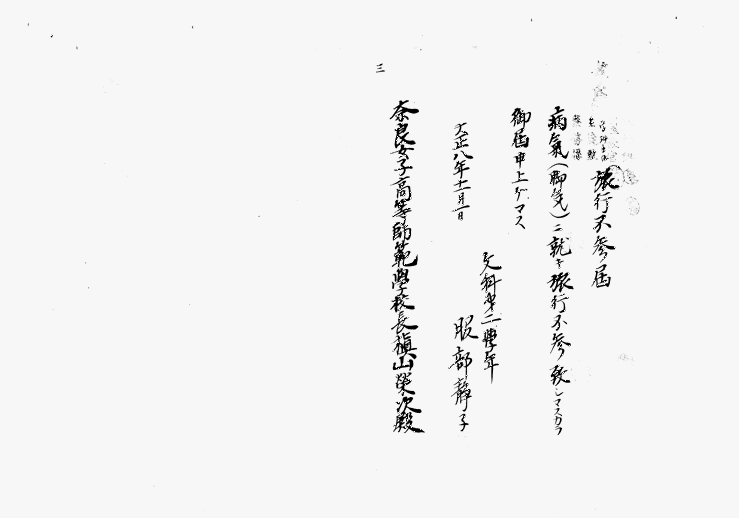 旅行不參届
病氣(脚気)ニ就キ旅行不參致シマスカラ
御届申上ゲマス
大正八年十一月一日
文科第二學年
服部靜子
奈良女子高等師範學校長槇山榮次殿
三